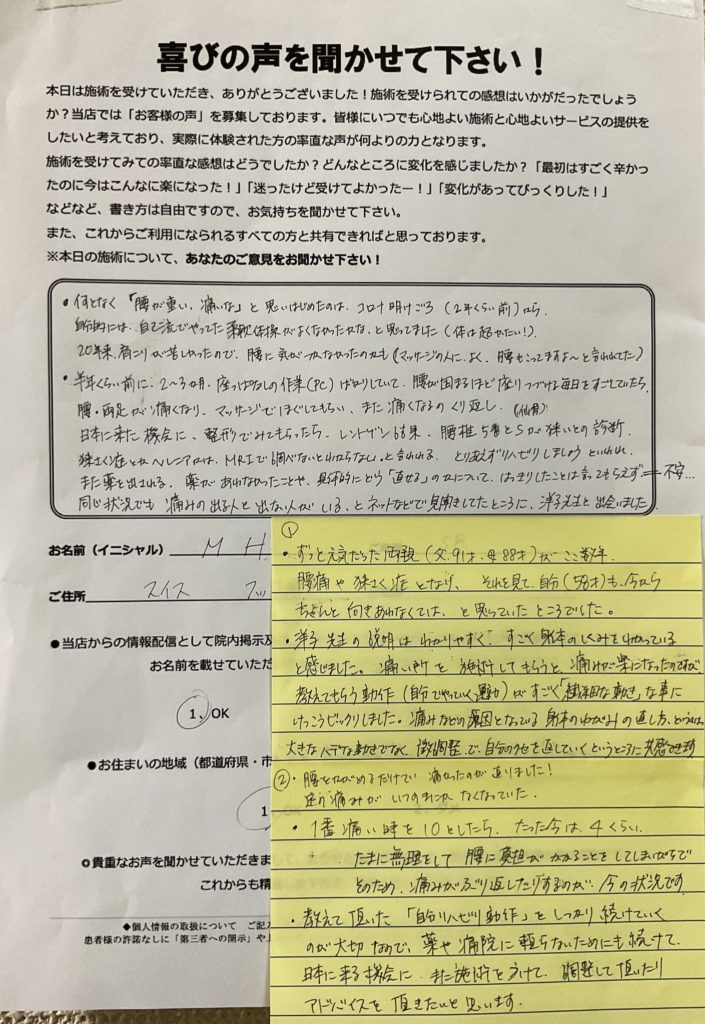 喜びの声を聞かせて下さい！
本日は施術を受けていただき、ありがとうございました！施術を受けられての感想はいかがだったでしょう
か？当店では「お客様の声」を募集しております。皆様にいつでも心地よい施術と心地よいサービスの提供を
したいと考えており、実際に体験された方の率直な声が何よりの力となります。
施術を受けてみての率直な感想はどうでしたか？どんなところに変化を感じましたか？「最初はすごく辛かっ
たのに今はこんなに楽になった！」「迷ったけど受けてよかったー！」「変化があってびっくりした！」
などなど、書き方は自由ですので、お気持ちを聞かせて下さい。
また、これからご利用になられるすべての方と共有できればと思っております。
※本日の施術について、あなたのご意見をお聞かせ下さい！
・何となく「腰が重い、痛いな」と思いはじめたのは、コロナ明けごろ（2年くらい前）から．
自分的には、自己流でやってた柔軟体操がよくなかったかな、と思ってました（体は超かたい！）．
20年来、肩こりが苦しかったので、腰に気がつかなかったのかも（マッサージの人に、よく、腰もこってますよ〜と言われてた）
・半年くらい前に、2〜3ヵ月、座りっぱなしの作業（PC）ばかりしていて、腰が固まるほど座りつづける毎日をすごしていたら、
腰・両足が痛くなり、マッサージでほぐしてもらい、また痛くなるのくり返し．
（仙骨）
日本に来た機会に、整形でみてもらったら、レントゲン結果、腰椎5番とSが狭いとの診断．
狭さく症とかヘルニアかは、MRIで調べないとわからない、と言われる．とりあえずリハビリしましょうといわれ、
また薬を出される．薬があわなかったことや、具体的にどう「直せる」のかについて、はっきりしたことは言ってもらえず＝不安…
同じ状況でも痛みの出る人と出ない人がいる、とネットなどで見聞きしてたところに、洋子先生と出会いました．
お名前（イニシャル） M H.
ご住所 スイス
●当店からの情報配信として院内掲示及
お名前を載せていただ
1、OK
●お住まいの地域（都道府県・市
1
◎貴重なお声を聞かせていただきま
これからも精
◆個人情報の取扱について ご記入
患者様の許諾なしに「第三者への開示」や
①
・ずっと元気だった両親（父、91才、母88才）がここ数年．
腰痛や狭さく症となり、それを見て、自分（58才）も、今から
ちゃんと向きあわなくては、と思っていたところでした。
・洋子先生の説明はわかりやすく、すごく身体のしくみをわかっている
と感じました。痛い所を施術してもらうと、痛みが楽になったのですが、
教えてもらう動作（自分でやっていく運動）がすごく「繊細な動き」な事に
けっこうビックリしました。痛みなどの原因となっている身体のゆがみの直し方、というのは、
大きなハデな動きでなく、微調整で、自分のクセを直していくというところに共感できます
②・腰をかがめるだけで痛かったのが直りました！
足の痛みがいつのまにかなくなっていた．
・1番痛い時を10としたら、たった今は、4くらい．
たまに無理をして腰に負担がかかることをしてしまいがちで
そのため、痛みがぶり返したりするのが、今の状況です．
・教えて頂いた「自分リハビリ動作」をしっかり続けていく
のが大切なので、薬や病院に頼らないためにも続けて、
日本に来る機会に、また施術をうけて、調整して頂いたり
アドバイスを頂きたいと思います．